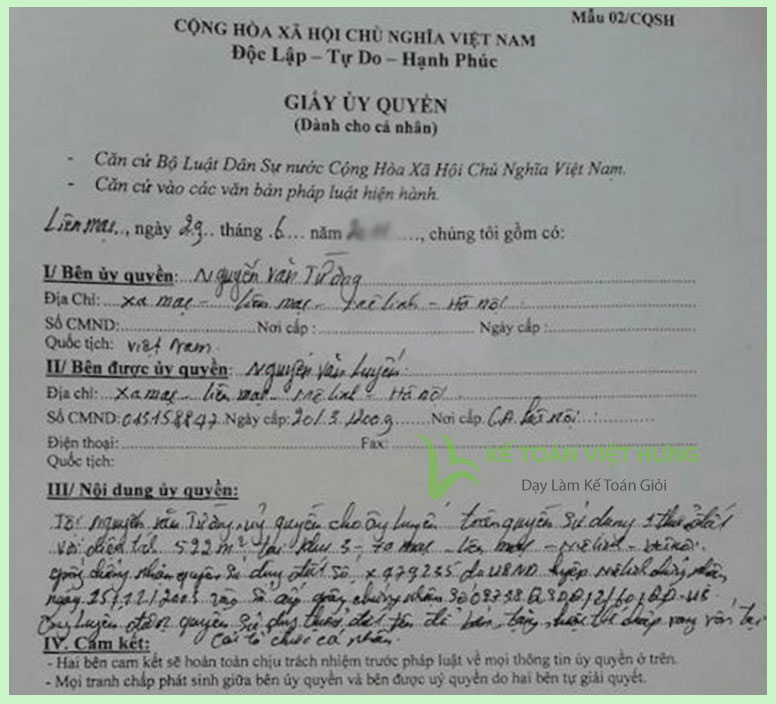 Mẫu 02/CQSH
CỘNG HÒA XÃ HỘI CHỦ NGHĨA VIỆT NAM
Độc Lập – Tự Do – Hạnh Phúc
GIẤY ỦY QUYỀN
(Dành cho cá nhân)
- Căn cứ Bộ Luật Dân Sự nước Cộng Hòa Xã Hội Chủ Nghĩa Việt Nam.
- Căn cứ vào các văn bản pháp luật hiện hành.
Liên mạc.., ngày 29.. tháng .6... năm ......, chúng tôi gồm có:
I/ Bên ủy quyền: Nguyễn Văn Tưởng
Địa Chỉ: xa mạc - Liên mạc - Mê linh - Hà nội
Số CMND:............ Nơi cấp :............ Ngày cấp :............
Quốc tịch: việt Nam.
II/ Bên được ủy quyền: Nguyễn văn Luyến
Địa chỉ: xa mạc - liên mạc - Mê linh - Hà nội.
Số CMND: 015158847 Ngày cấp: 20/.3.1200.9 Nơi cấp C.A. Hà Nội
Điện thoại:............ Fax:
Quốc tịch:
KẾ TOÁN VIỆT HƯNG
Dạy Làm Kế Toán Giỏi
III/ Nội dung ủy quyền:
Tôi Nguyễn văn Tưởng, uỷ quyền cho ông Luyến toàn quyền sử dụng 1 thửa đất
với diện tích 522 m² tại khu 3 - xa mạc - liên mạc - Mê linh - Hà nội.
quyền sử dụng đất số X479235 do UBND huyện Mê linh chứng nhận
ngày 25/12/2003 vào sổ cấp giấy chứng nhận
ông Luyến quyền sử dụng thửa đất để bán, tặng, hoặc thế chấp vay vốn tại
các tổ chức cá nhân.
IV. Cam kết:
- Hai bên cam kết sẽ hoàn toàn chịu trách nhiệm trước pháp luật về mọi thông tin ủy quyền ở trên.
- Mọi tranh chấp phát sinh giữa bên ủy quyền và bên được uỷ quyền do hai bên tự giải quyết.